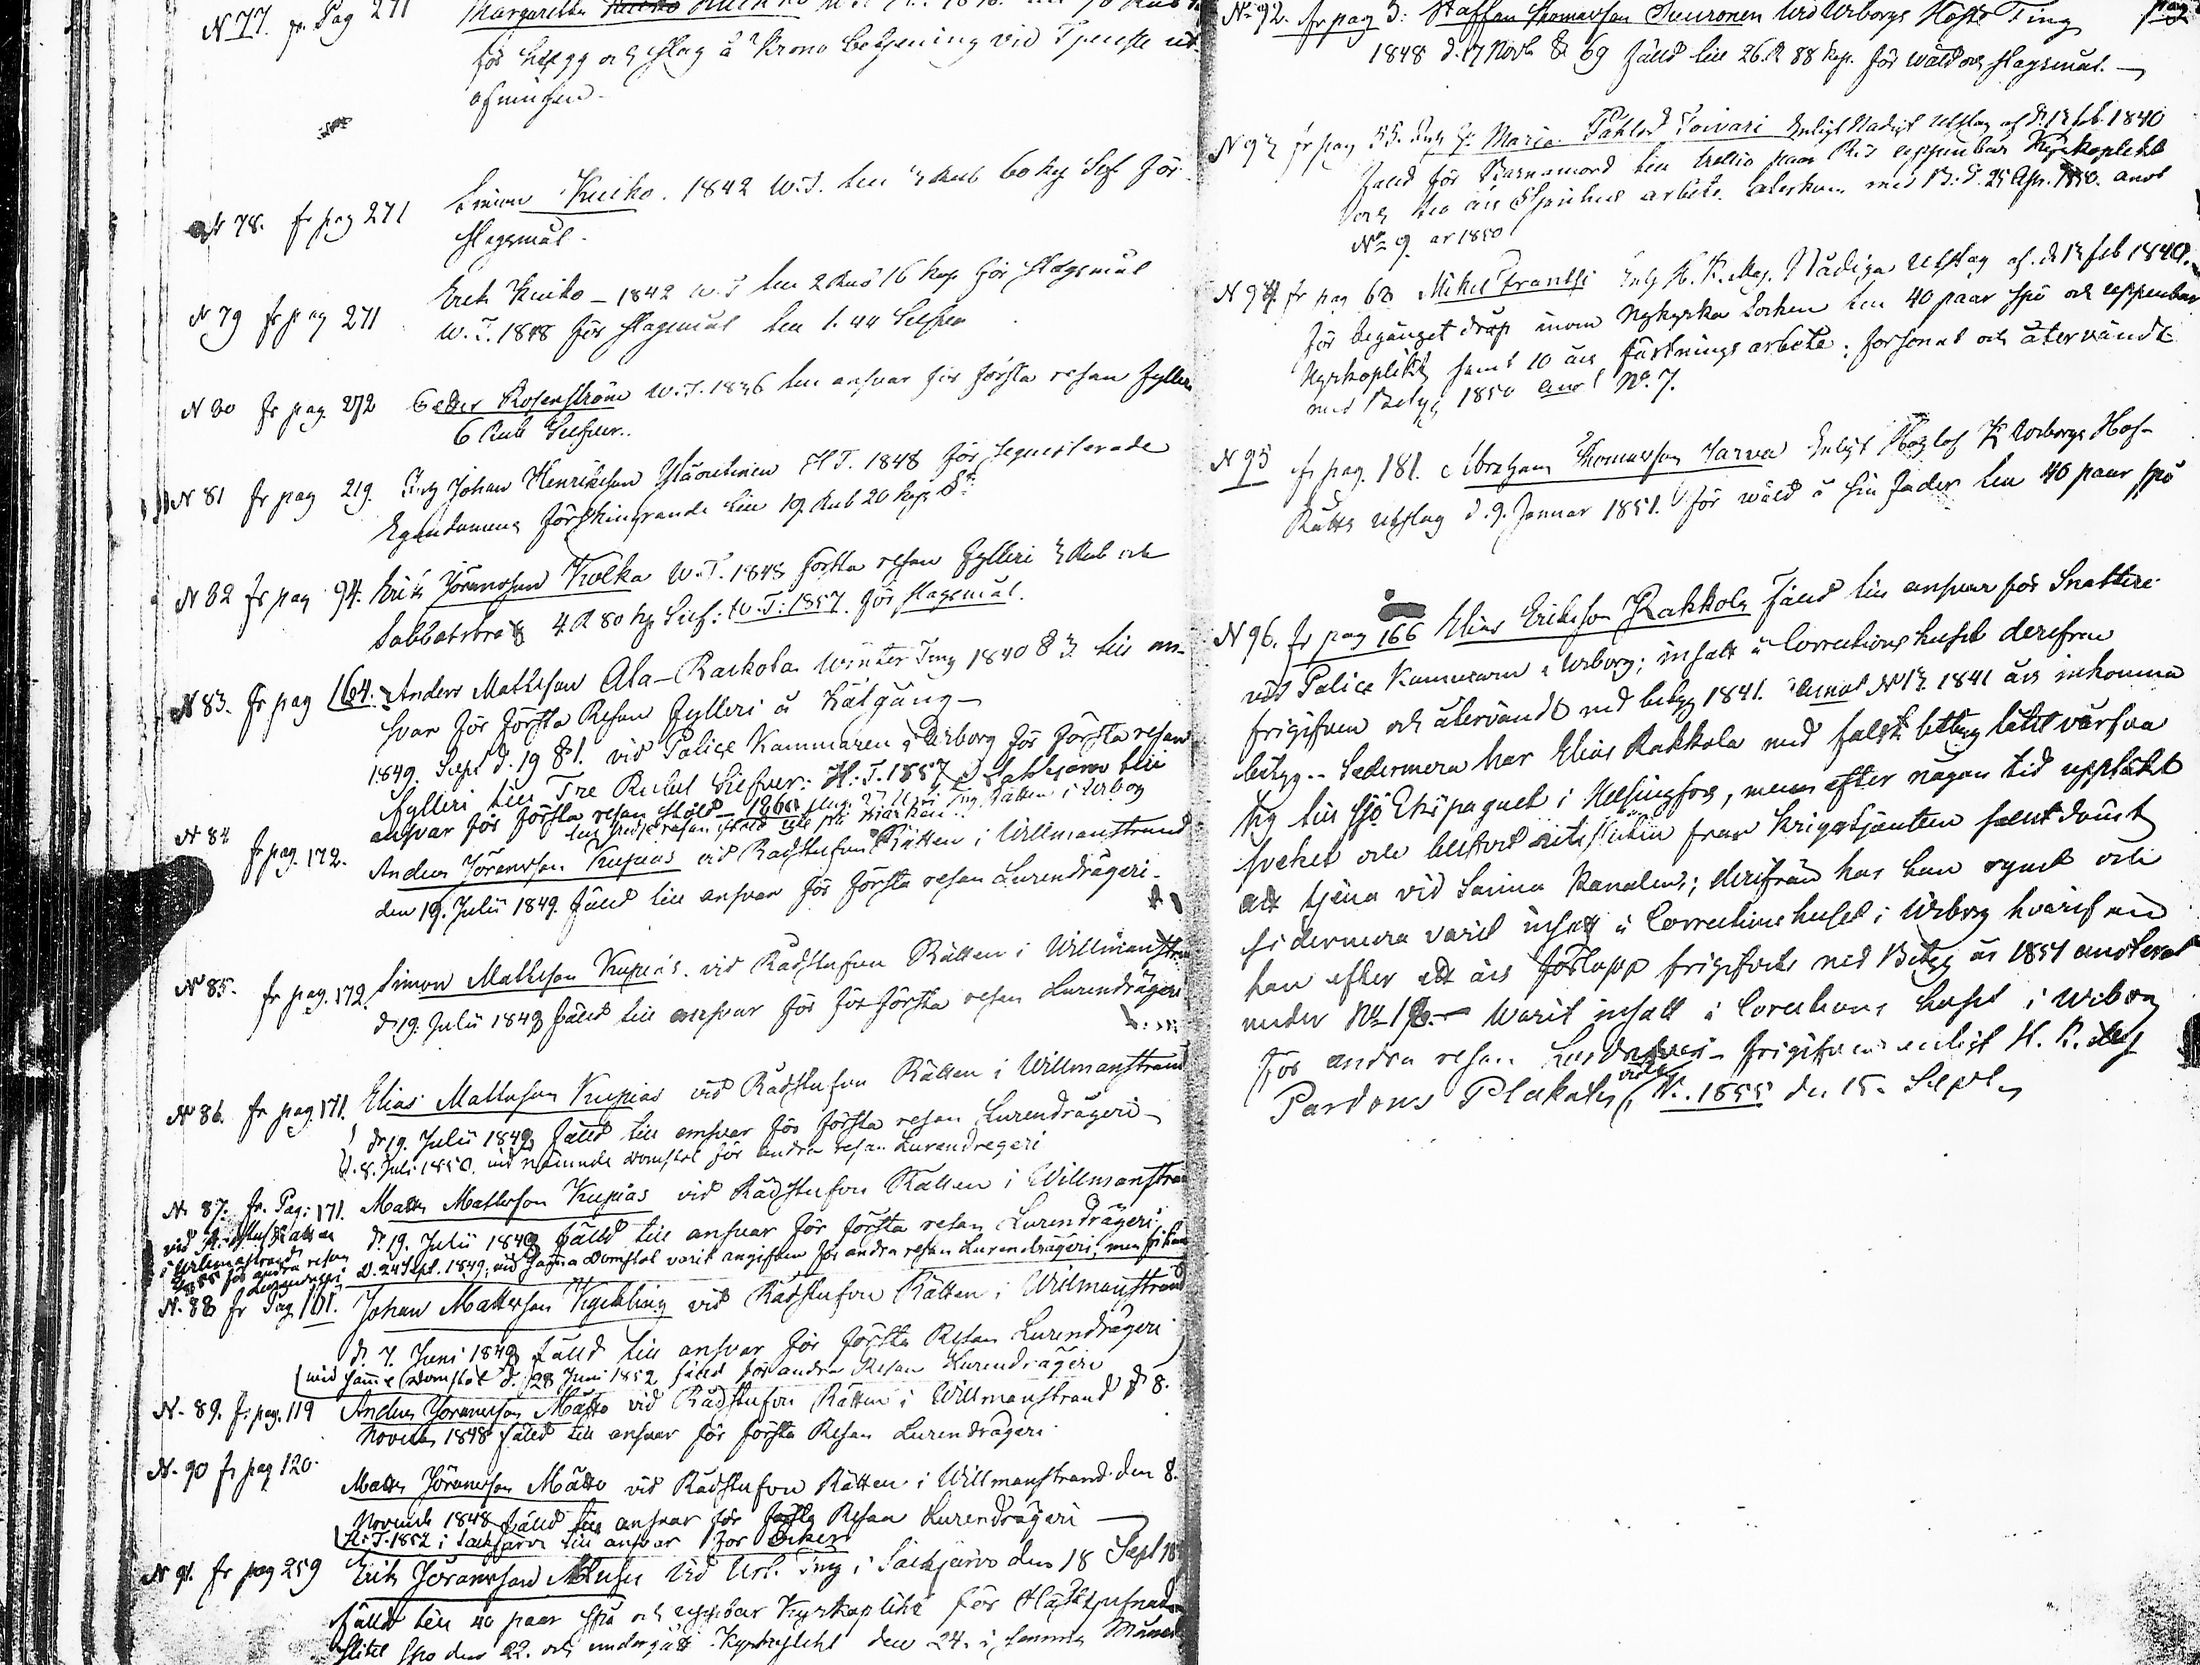 N 77. fr Pag 271 Margaretha
för hugg och slag å Krono betjening vid
N 78. fr pag 271 Simon Kuiko. 1842 W.T. till 3 Rub 60 kop Silf för
slagsmål.
N 79 fr pag 271 Erik Kuiko – 1842 W.T till 2 Rub 16 kop för slagsmål
W.T. 1848 för slagsmål till 1.44 Silfver
N 80 fr pag. 272 Petter Rosenström W.T. 1836 till ansvar för första resan fylleri
6 Rub Silfver..
N 81 fr pag 219. Johan Henriksson H.T. 1848 för sequesterade
Egendomens förskingrande till 19. Rub 20 kop Sr.
N 82 fr pag 94. Erik Jöransson Kolkka W.T. 1848 första resan fylleri 3 Rub och
Sabbatsbrott 4 R 80 kp Silf: W.T: 1857. för slagsmål.
N 83. fr pag 164. Anders Mattsson Ala-Rackola Winter Ting 1840 § 3. till an-
svar för första Resan fylleri å Rätgång –
1849. Sept d. 19 § 1. vid Police Kammaren i Wiborg för första resan
fylleri till Tre Rubel Silfver: H.T. 1857 i Säkkijärvi till
ansvar för första resan stöld – 1860
N 84 fr pag. 172. Anders Jöransson Kupias vid Rådstufvu Rätten i Willmanstrand
den 19. Julii 1849. fälld till ansvar för första resan Lurendrägeri.
N 85. fr pag. 172 Simon Mattsson Kupias. vid Rådstufvu Rätten i Willmanstrand
d 19. Julii 1849 fälld till ansvar för för första resan Lurendrägeri
N 86. fr pag. 171. Elias Mattsson Kupias vid Rådstufvu Rätten i Willmanstrand
d 19. Julii 1849 fälld till ansvar för första resan Lurendrägeri –
d. 8. Juli 1850. vid nämnde domstol för andra resan Lurendregeri
N 87. fr. Pag: 171. Matts Mattsson Kupias vid Rådstufvu Rätten i Willmanstrand
d. 19. Julii 1849 fälld till ansvar för första resan Lurendrägeri,
d. 24 Sept. 1849, vid samma Domstol varit angifven för andra resan Lurendrägeri, men frikänd
vid Rådstufvu Rätten
i Willmanstrand
för andra resan
Lurendrägeri
N. 88 fr Pag 101. Johan Mattsson vid Rådstufvu Rätten i Willmanstrand
d. 7. Juni 1849 fälld till ansvar för första Resan Lurendrägeri
(vid samma Domstol d. 28 Juni 1852 fälld för andra Resan Lurendrägeri
N. 89. fr pag. 119 Anders Jöransson Mättö vid Rådstufvu Rätten i Willmanstrand d 8.
November 1848 fälld till ansvar för första Resan Lurendrägeri
N. 90 fr pag 120. Matts Jöransson Mättö vid Rådstufvu Rätten i Willmanstrand den 8.
November 1848 fälld till ansvar för första Resan Lurendrägeri –
H.T. 1852 i Säkkjärvi till ansvar för
N 91. fr pag 259 Erik Jöransson vid Urt. Ting i Säckjärvi den 18 Sept
fälld till 40 paar spö och uppenbar Kyrkoplikt för Hästtjufnad
slitit spö den 22. och undergått Kyrkoplikt den 24. i samma Månad
N. 92. fr pag 3: Staffan Thomasson Suuronen vid Wiborgs Höste Ting
1848 d. 17 Nov. § 69 fälld till 26. R 88 kop. för våld och slagsmål. –
N 93 fr pag 55. Maria Toivari Enligt Nådigt Utslag af d. 12 feb 1840
fälld för Barnamord till trettio paar Ris uppenbar Kyrkoplikt
och tio års Spinhus arbete. återkom. med B: d. 25 Apr. 1850. anot
No 9. år 1850
N 94. fr pag 68 Mikel Frantsi Enl H. K. Maj. Nådiga Utslag af. d. 12 feb 1840.
för begånget dråp inom Nykyrka Socken till 40 paar spö och uppenbar
Kyrkoplikt samt 10 års fästnings arbete; försonat och återvändt
med Betyg 1850 anot No. 7.
N 95 fr pag. 181. Abraham Thomasson Jarva Enligt Högl. K Wiborgs Hof-
Rätts Utslag d. 9. Januar 1851. för våld å sin fader till 40 paar spö
N 96. fr pag 166 Elias Eriksson Rakkola fälld till ansvar för Snatteri
vid Police Kammaren i Wiborg; insatt å Corrections huset derifrån
frigifven och återvändt med betyg 1841. anot N 13. 1841 års inkomna
betyg. – Sedermera har Elias Rakkola med falskt betyg låtit värfva
sig till sjö Ekipaget i Helsingfors, men efter någon tid upptäckt
sveket och blifvit utesluten från Krigstjensten samt dömd
att tjena vid Saima Kanalen; derifrån har han rymt och
sedermera varit insatt å Correctionshuset i Wiborg hvarifrån
han efter ett års förlopp frigifvits med Betyg år 1854 anoterat
under No 18. – Warit insatt i Corrections huset i Wiborg
för andra resan – frigifven enligt H. K. Maj
Pardons Plakater 1855 den 15. Septr